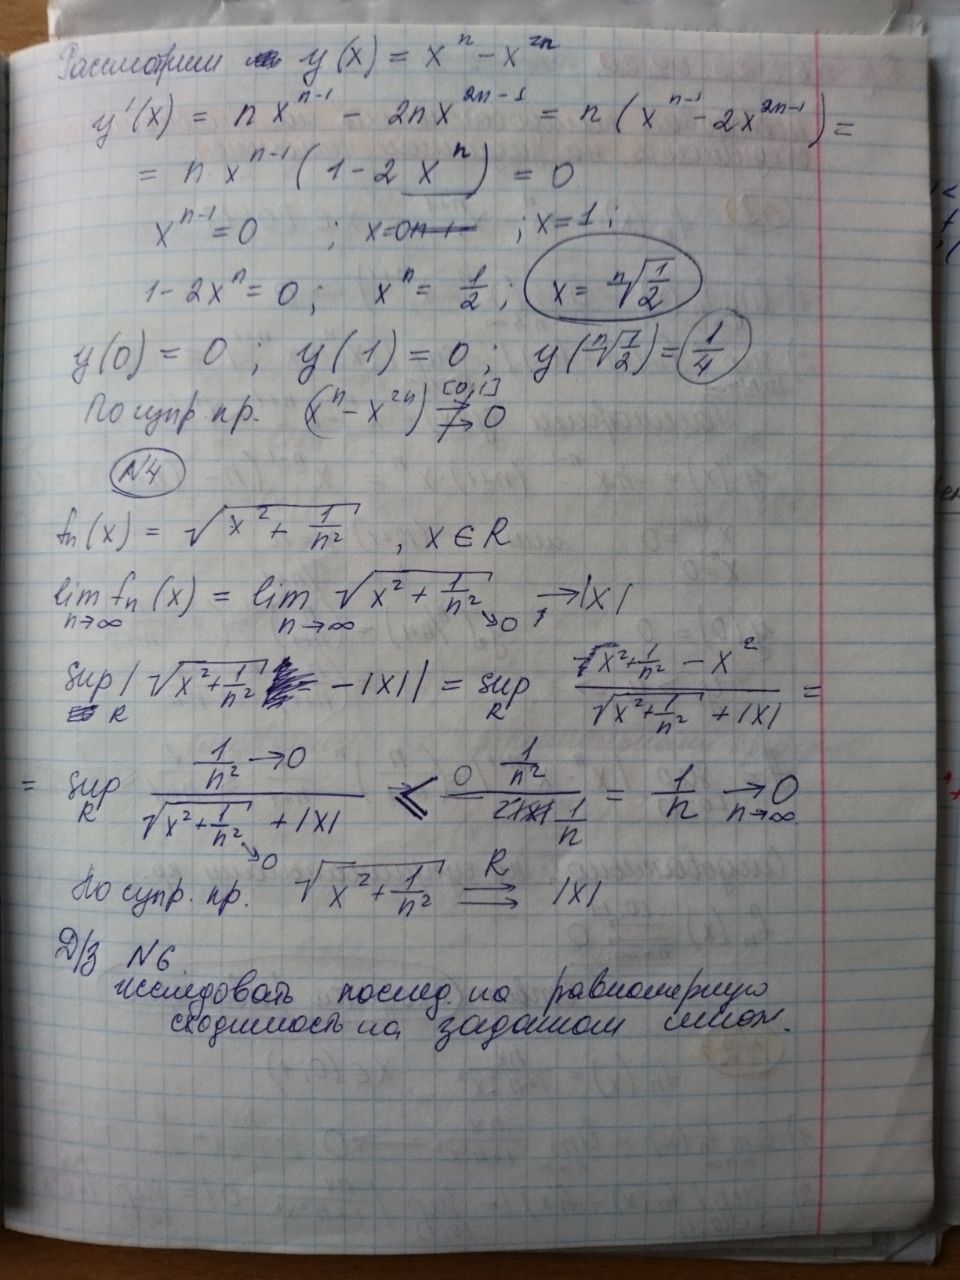 Рассмотрим y(x) = xⁿ − x²ⁿ
y'(x) = n xⁿ⁻¹ − 2n x²ⁿ⁻¹ = n (xⁿ⁻¹ − 2x²ⁿ⁻¹) =
= n xⁿ⁻¹ (1 − 2 xⁿ) = 0
xⁿ⁻¹ = 0 ; x=0 ; x=1 ;
1 − 2xⁿ = 0 ; xⁿ = 1/2 ; x = ⁿ√(1/2)
y(0) = 0 ; y(1) = 0 ; y(ⁿ√(1/2)) = 1/4
По супр. пр. (xⁿ − x²ⁿ) ⇉̸ 0 [0,1]
N4
fₙ(x) = √(x² + 1/n²) , x ∈ R
lim n→∞ fₙ(x) = lim n→∞ √(x² + 1/n² →0) , → |x|
sup R | √(x² + 1/n²) − |x| | = sup R (x² + 1/n² − x²) / (√(x² + 1/n²) + |x|) =
= sup R (1/n² → 0) / (√(x² + 1/n² →0) + |x|) ≤ (1/n²) / (1/n) = 1/n → 0 n→∞
По супр. пр. √(x² + 1/n²) ⇉ R |x|
Д/З N6.
исследовать послед. на равномерную
сходимость на заданном множ.